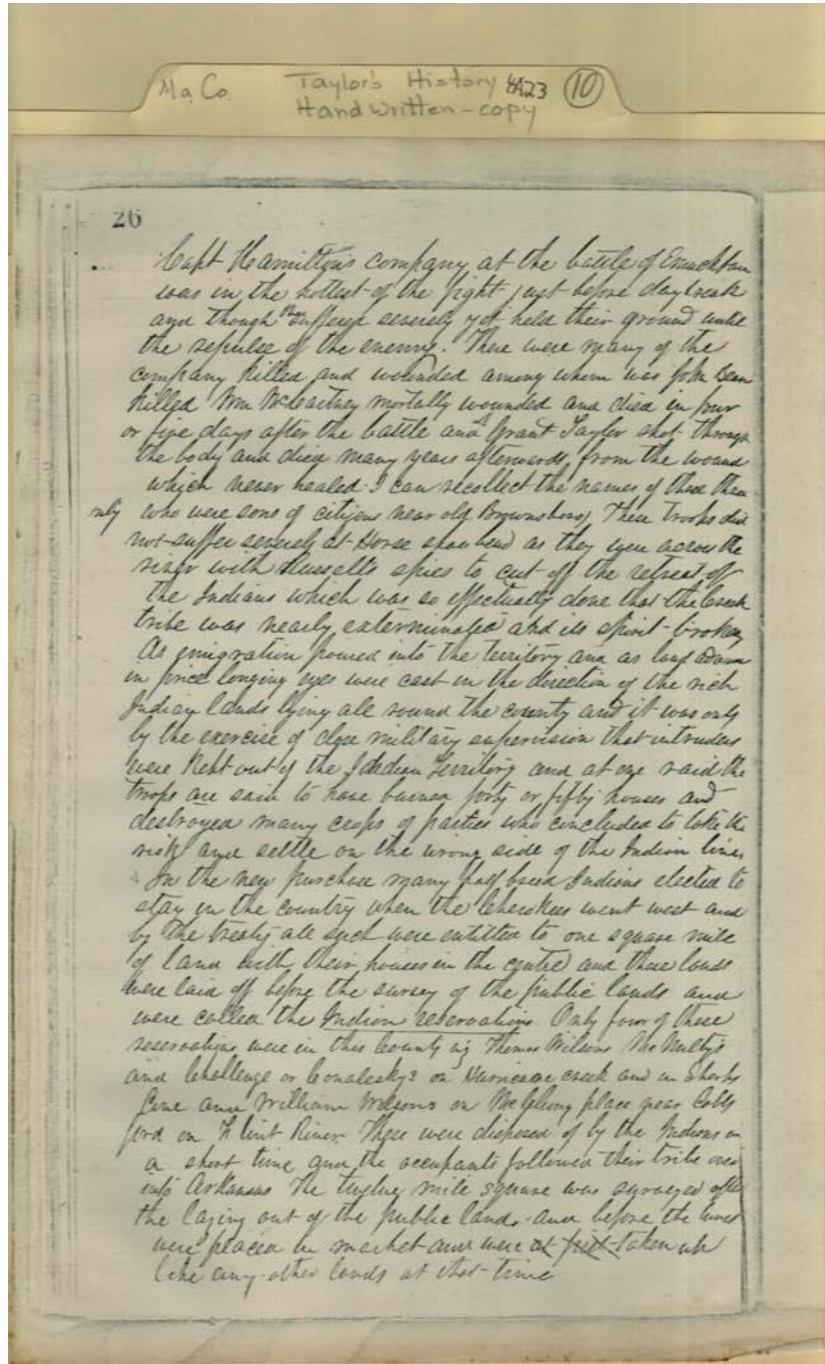 Ma. Co. Taylor's History 4A23 10
Hand written - copy
26
Capt Hamilton's company, at the battle of
was in the hottest of the fight just before daybreak
and though they suffered severely yet held their ground until
the repulse of the enemy. There were many of the
company killed and wounded among whom was John Bean
killed Wm McCartney mortally wounded and died in four
or five days after the battle and Grant Taylor shot through
the body and died many years afterwards, from the wound
which never healed. I can recollect the names of these three
only who were sons of citizens near old Brownsboro, These troops did
not suffer severely at Horse shoe bend as they were across the
river with Russell's spies to cut off the retreat of
the Indians which was so effectually done that the Creek
tribe was nearly exterminated and its spirit broken
As emigration poured into the territory and as land
in price longing eyes were cast in the direction of the rich
Indian lands lying all round the county and it was only
by the exercise of close military supervision that intruders
were kept out of the Indian Territory and at one raid the
troops are said to have burned forty or fifty houses and
destroyed many crops of parties who concluded to take the
risk and settle on the wrong side of the Indian line,
In the new purchase many half breed Indians elected to
stay in the country when the Cherokees went west and
by the treaty all such were entitled to one square mile
of land with their houses in the centre and these lands
were laid off before the survey of the public lands and
were called the Indian reservations. Only four of these
reservations were in this County viz Thomas Wilsons McNultys
and Challenge or on Hurricane creek and
and William Wilsons on place near Cobbs
ford on Flint River. These were disposed of by the Indians in
a short time and the occupants followed their tribe over
into Arkansas The twelve mile square was surveyed after
the laying out of the public lands and before the
were placed in market and were at taken up
like any other lands at that time